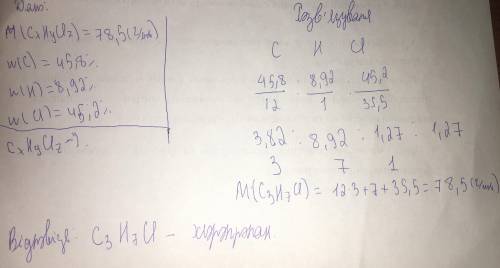 Дано:
M(CxHyClz) = 78,5 (г/моль)
w(C) = 45,8 %
w(H) = 8,92 %
w(Cl) = 45,2 %
CxHyClz - ?
Розв'язування
C H Cl
45,8/12 : 8,92/1 : 45,2/35,5
3,82 : 8,92 : 1,27 : 1,27
3 7 1
M(C3H7Cl) = 12·3+7+35,5 = 78,5 (г/моль)
Відповідь: C3H7Cl - хлорпропан.